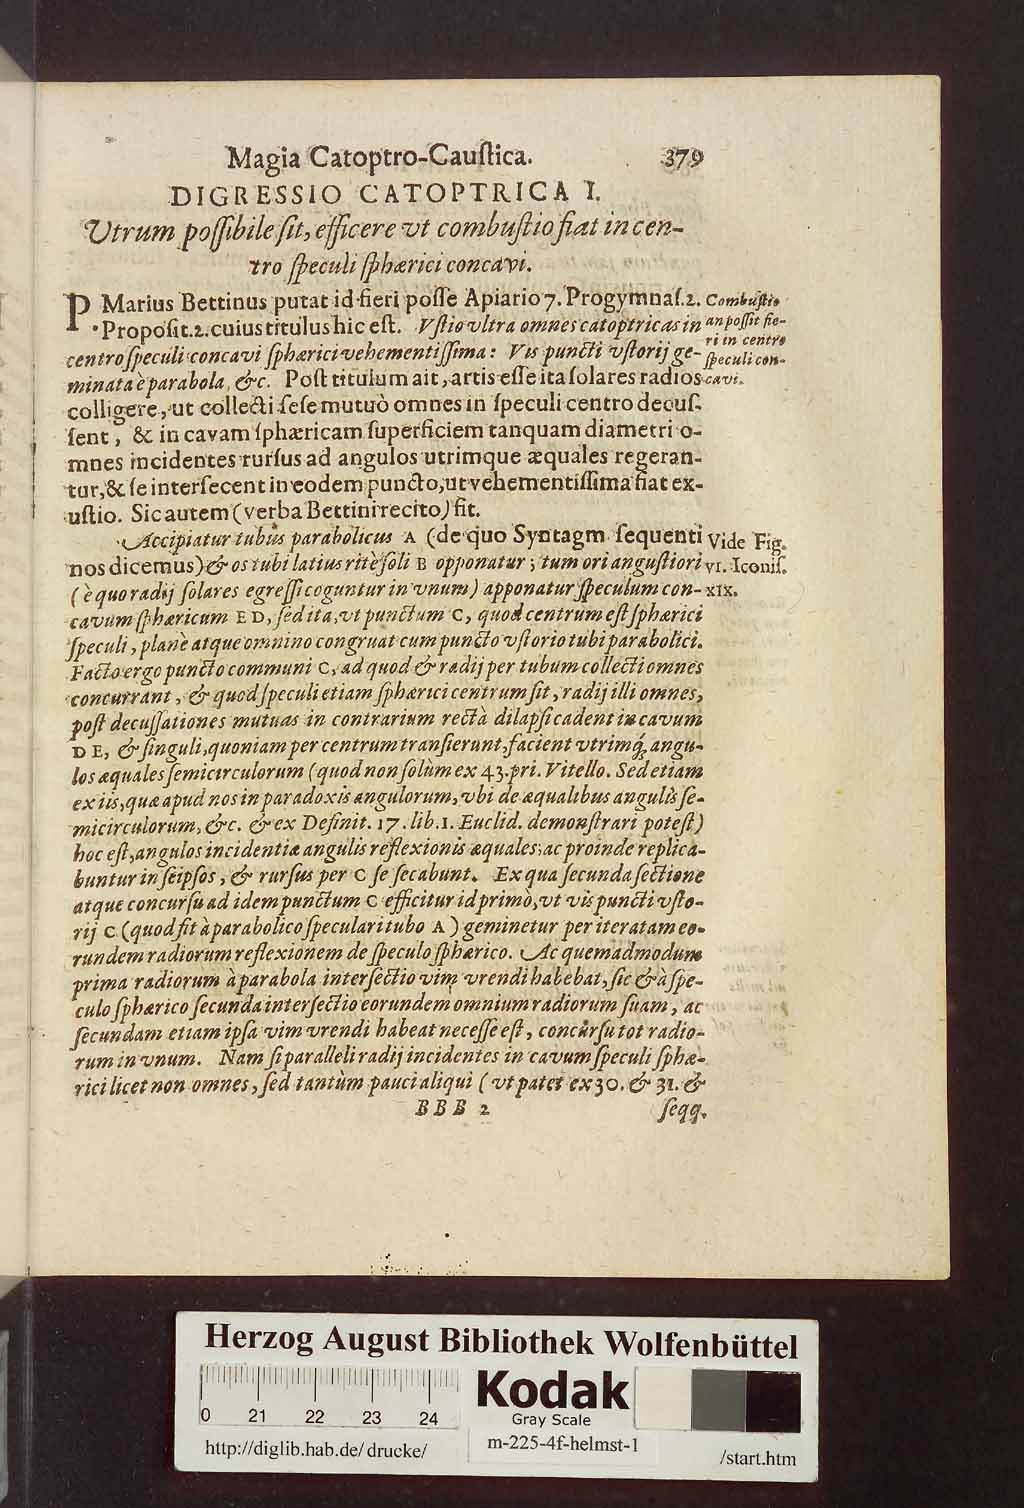 Magia Catoptro-Cauſtica. 379
DIGRESSIO CATOPTRICA I.
Utrum poſſibile ſit, efficere vt combuſtio fiat in cen-
tro ſpeculi ſphærici concavi.
P. Marius Bettinus putat id fieri poſſe Apiario 7. Progymnaſ. 2.
Propoſit. 2. cuius titulus hic eſt. Vſtio vltra omnes catoptricas in
centro ſpeculi concavi ſphærici vehementiſſima: Vis puncti vſtorij ge-
minata è parabola, &c. Poſt titulum ait, artis eſſe ita ſolares radios
colligere, ut collecti ſeſe mutuò omnes in ſpeculi centro decuſ-
ſent, & in cavam ſphæricam ſuperficiem tanquam diametri o-
mnes incidentes rurſus ad angulos utrimque æquales regeran-
tur, & ſe interſecent in eodem puncto, ut vehementiſſima fiat ex-
uſtio. Sic autem (verba Bettini recito) fit.
Combuſtio
an poſſit fie-
ri in centro
ſpeculi con-
cavi.
Accipiatur tubus parabolicus A (de quo Syntagm ſequenti
nos dicemus) & os tubi latius ritè ſoli B opponatur; tum ori anguſtiori
(è quo radij ſolares egreſſi coguntur in vnum) apponatur ſpeculum con-
cavum ſphæricum E D, ſed ita, vt punctum C, quod centrum eſt ſphærici
ſpeculi, planè atque omnino congruat cum puncto vſtorio tubi parabolici.
Facto ergo puncto communi C, ad quod & radij per tubum collecti omnes
concurrant, & quod ſpeculi etiam ſphærici centrum ſit, radij illi omnes,
poſt decuſſationes mutuas in contrarium rectà dilapſi cadent in cavum
D E, & ſinguli, quoniam per centrum tranſierunt, facient vtrimq; angu-
los æquales ſemicirculorum (quod non ſolùm ex 43. pri. Vitello. Sed etiam
ex iis, quæ apud nos in paradoxis angulorum, vbi de æqualibus angulis ſe-
micirculorum, &c. & ex Definit. 17. lib. 1. Euclid. demonſtrari poteſt)
hoc eſt, angulos incidentiæ angulis reflexionis æquales; ac proinde replica-
buntur in ſeipſos, & rurſus per C ſe ſecabunt. Ex qua ſecunda ſectione
atque concurſu ad idem punctum C efficitur id primò, vt vis puncti vſto-
rij C (quod fit à parabolico ſpeculari tubo A) geminetur per iteratam eo-
rundem radiorum reflexionem de ſpeculo ſphærico. Ac quemadmodum
prima radiorum à parabola interſectio vim vrendi habebat, ſic & à ſpe-
culo ſphærico ſecunda interſectio eorundem omnium radiorum ſuam, ac
ſecundam etiam ipſa vim vrendi habeat neceſſe eſt, concurſu tot radio-
rum in vnum. Nam ſi paralleli radij incidentes in cavum ſpeculi ſphæ-
rici licet non omnes, ſed tantùm pauci aliqui (vt patet ex 30. & 31. &
Vide Fig.
VI. Iconiſ.
XIX.
BBB 2 ſeqq.
Herzog August Bibliothek Wolfenbüttel
0 21 22 23 24
Kodak
Gray Scale
http://diglib.hab.de/drucke/
m-225-4f-helmst-1
/start.htm